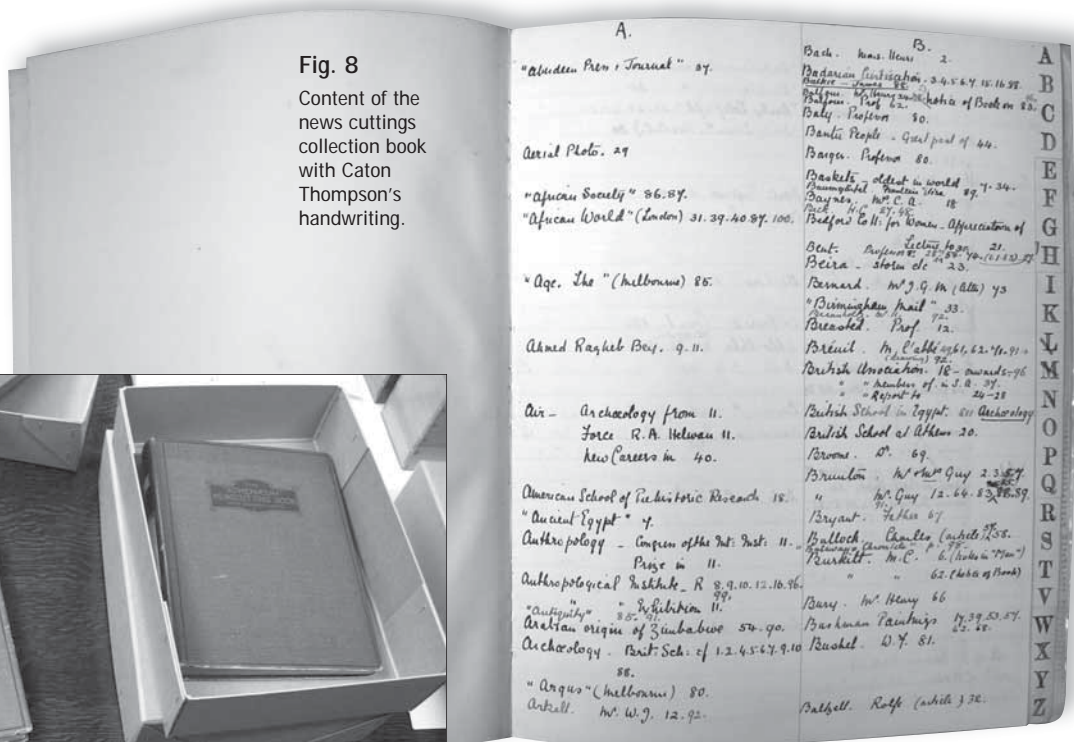 Fig. 8
Content of the
news cuttings
collection book
with Caton
Thompson's
handwriting.
A.
"Aberdeen Press & Journal" 37.
Aerial Photo. 29
"African Society" 86.87.
"African World" (London) 31.39.40.87.100.
"Age. The" (Melbourne) 85.
Ahmed Ragheb Bey. 9.11.
Air - Archæology from 11.
Force R.A. Helwan 11.
New Careers in 40.
American School of Prehistoric Research 18.
"Ancient Egypt" 7.
Anthropology - Congress of the Int: Inst: 11.
Prize in 11.
Anthropological Institute. R 8.9.10.12.16.96.
99.
" " Exhibition 11.
"Antiquity" 85. 91.
Arabian origin of Zimbabwe 54.90.
Archæology. Brit. Sch: of 1.2.4.5.6.7.9.10
88.
"Argus" (Melbourne) 80.
Arkell. Mr. W.J. 12.92.
B.
Bach. Mons. Henri 2.
Badarian Civilisation. 3.4.5.6.7.15.16.98.
Balfour. Prof 62. notice of Book on 83.
Baly. Professor 80.
Bantu People - Great past of 44.
Barger. Professor 80.
Baskets - oldest in world 7.34.
Baynes. Mr. C. A. 18
Bedford Coll: for Women - Appreciation of
Lecture to 30. 21.
Bent. Professor
Beira - storm etc 23.
Bernard. Mr J.G.M (Atta) 73
"Birmingham Mail" 33.
Breasted. Prof. 12.
Breuil. M. l'abbé 61.62.71.91
(drawing) 92.
British Association. 18 - onwards - 96
" " members of. in S.A. 37.
" " Report to 24-28
British School in Egypt. see Archæology
British School at Athens 20.
Broome. Dr. 69.
Brunton. Mr & Mrs Guy 2.3.5.7.
" Mr. Guy 12.64.83.88.89.
Bryant. Father 67
Bullock. Charles (article) 58.
"Bulawayo Chronicle" p. 98.
Burkitt. M.C. 6. (notes in "Man")
" " 62. (notice of Book)
Bury. Mr. Henry 66
Bushman Paintings 17.39.53.57.
62.68.
Bushel. W.F. 81.
Baltzell. Rolfe (article) 32.
A
B
C
D
E
F
G
H
I
K
L
M
N
O
P
Q
R
S
T
V
W
X
Y
Z